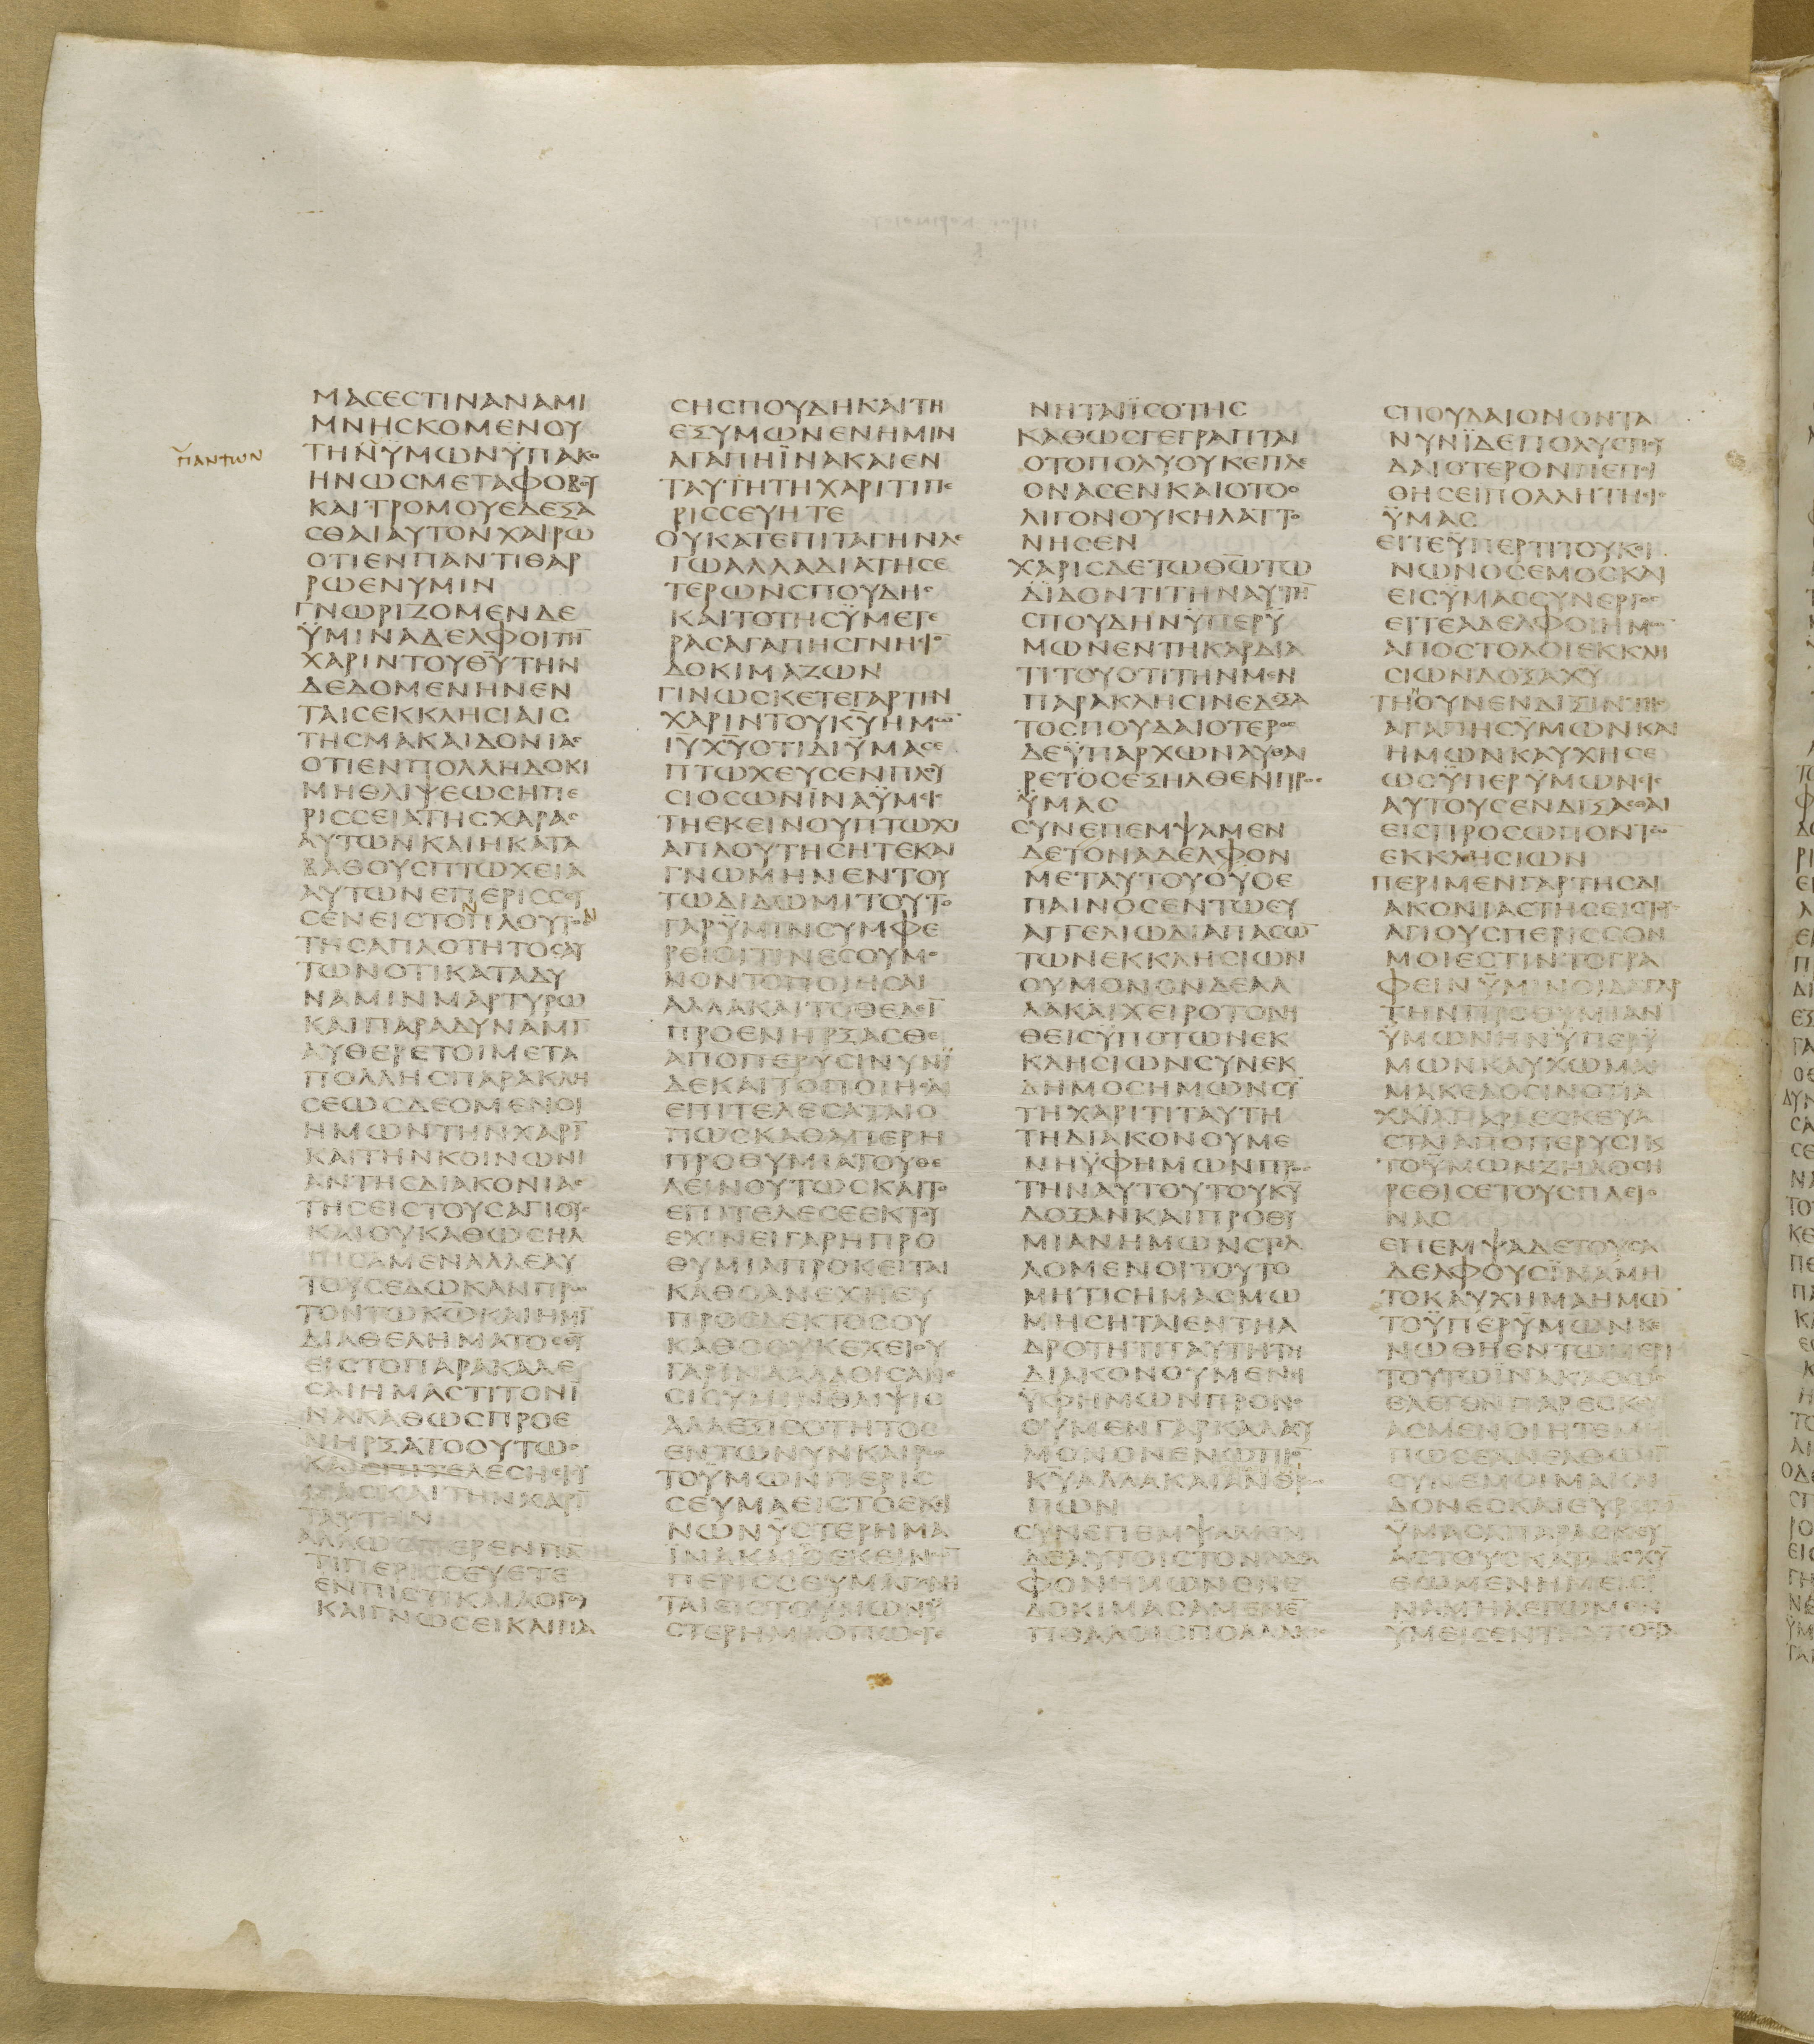 ΜΑϹΕϹΤΙΝΑΝΑΜΙ
ΜΝΗϹΚΟΜΕΝΟΥ
ΠΑΝΤΩΝ
ΤΗΝΫΜΩΝΫΠΑΚΟ
ΗΝΩϹΜΕΤΑΦΟΒΟΥ
ΚΑΙΤΡΟΜΟΥΕΔΕΞΑ
ϹΘΑΙΑΥΤΟΝΧΑΙΡΩ
ΟΤΙΕΝΠΑΝΤΙΘΑΡ
ΡΩΕΝΥΜΙΝ
ΓΝΩΡΙΖΟΜΕΝΔΕ
ΫΜΙΝΑΔΕΛΦΟΙΤΗ̅
ΧΑΡΙΝΤΟΥΘ̅Υ̅ΤΗΝ
ΔΕΔΟΜΕΝΗΝΕΝ
ΤΑΙϹΕΚΚΛΗϹΙΑΙϹ
ΤΗϹΜΑΚΑΙΔΟΝΙΑϹ
ΟΤΙΕΝΠΟΛΛΗΔΟΚΙ
ΜΗΘΛΙΨΕΩϹΗΠΕ
ΡΙϹϹΕΙΑΤΗϹΧΑΡΑϹ
ΑΥΤΩΝΚΑΙΗΚΑΤΑ
ΒΑΘΟΥϹΠΤΩΧΕΙΑ
ΑΥΤΩΝΕΠΕΡΙϹϹΕΥ
ϹΕΝΕΙϹΤΟΠΛΟΥΤΟϹ
ΤΗϹΑΠΛΟΤΗΤΟϹΑΥ
ΤΩΝΟΤΙΚΑΤΑΔΥ
ΝΑΜΙΝΜΑΡΤΥΡΩ
ΚΑΙΠΑΡΑΔΥΝΑΜΙ̅
ΑΥΘΕΡΕΤΟΙΜΕΤΑ
ΠΟΛΛΗϹΠΑΡΑΚΛΗ
ϹΕΩϹΔΕΟΜΕΝΟΙ
ΗΜΩΝΤΗΝΧΑΡΙ̅
ΚΑΙΤΗΝΚΟΙΝΩΝΙ
ΑΝΤΗϹΔΙΑΚΟΝΙΑϹ
ΤΗϹΕΙϹΤΟΥϹΑΓΙΟΥϹ
ΚΑΙΟΥΚΑΘΩϹΗΛ
ΠΙϹΑΜΕΝΑΛΛΕΑΥ
ΤΟΥϹΕΔΩΚΑΝΠΡΩ
ΤΟΝΤΩΚ̅Ω̅ΚΑΙΗΜΙ̅
ΔΙΑΘΕΛΗΜΑΤΟϹΘ̅Υ̅
ΕΙϹΤΟΠΑΡΑΚΑΛΕ
ϹΑΙΗΜΑϹΤΙΤΟΝΙ
ΝΑΚΑΘΩϹΠΡΟΕ
ΝΗΡΞΑΤΟΟΥΤΩϹ
ΚΑΙΕΠΙΤΕΛΕϹΗΕΙϹΫ
ΜΑϹΚΑΙΤΗΝΧΑΡΙ̅
ΤΑΥΤΗΝ
ΑΛΛΩϹΠΕΡΕΝΠΑ̅
ΤΙΠΕΡΙϹϹΕΥΕΤΕ
ΕΝΠΙϹΤΙΚΑΙΛΟΓΩ
ΚΑΙΓΝΩϹΕΙΚΑΙΠΑ
ϹΗϹΠΟΥΔΗΚΑΙΤΗ
ΕΞΥΜΩΝΕΝΗΜΙΝ
ΑΓΑΠΗΪΝΑΚΑΙΕΝ
ΤΑΥΤΗΤΗΧΑΡΙΤΙΠΕ
ΡΙϹϹΕΥΗΤΕ
ΟΥΚΑΤΕΠΙΤΑΓΗΝΛΕ
ΓΩΑΛΛΑΔΙΑΤΗϹΕ
ΤΕΡΩΝϹΠΟΥΔΗϹ
ΚΑΙΤΟΤΗϹΫΜΕΤΕ
ΡΑϹΑΓΑΠΗϹΓΝΗϹΙΟ̅
ΔΟΚΙΜΑΖΩΝ
ΓΙΝΩϹΚΕΤΕΓΑΡΤΗΝ
ΧΑΡΙΝΤΟΥΚ̅Υ̅ΗΜΩ̅
Ι̅Υ̅Χ̅Υ̅ΟΤΙΔΙΫΜΑϹΕ
ΠΤΩΧΕΥϹΕΝΠΛΟΥ
ϹΙΟϹΩΝΪΝΑΫΜΕΙϹ
ΤΗΕΚΕΙΝΟΥΠΤΩΧΙ
ΑΠΛΟΥΤΗϹΗΤΕΚΑΙ
ΓΝΩΜΗΝΕΝΤΟΥ
ΤΩΔΙΔΩΜΙΤΟΥΤΟ
ΓΑΡΫΜΙΝϹΥΜΦΕ
ΡΕΙΟΙΤΙΝΕϹΟΥΜΟ
ΝΟΝΤΟΠΟΙΗϹΑΙ
ΑΛΛΑΚΑΙΤΟΘΕΛΕΙ̅
ΠΡΟΕΝΗΡΞΑϹΘΕ
ΑΠΟΠΕΡΥϹΙΝΥΝΪ
ΔΕΚΑΙΤΟΠΟΙΗϹΑΙ
ΕΠΙΤΕΛΕϹΑΤΑΙΟ
ΠΩϹΚΑΘΑΠΕΡΗ
ΠΡΟΘΥΜΙΑΤΟΥΘΕ
ΛΕΙΝΟΥΤΩϹΚΑΙΤΟ
ΕΠΙΤΕΛΕϹΕΕΚΤΟΥ
ΕΧΙΝΕΙΓΑΡΗΠΡΟ
ΘΥΜΙΑΠΡΟΚΕΙΤΑΙ
ΚΑΘΟΑΝΕΧΗΕΥ
ΠΡΟϹΔΕΚΤΟϹΟΥ
ΚΑΘΟΟΥΚΕΧΕΙΟΥ
ΓΑΡΙΝΑΑΛΛΟΙϹΑΝΕ
ϹΙϹΥΜΙΝΘΛΙΨΙϹ
ΑΛΛΕΞΙϹΟΤΗΤΟϹ
ΕΝΤΩΝΥΝΚΑΙΡΩ
ΤΟΫΜΩΝΠΕΡΙϹ
ϹΕΥΜΑΕΙϹΤΟΕΚΕΙ
ΝΩΝΫϹΤΕΡΗΜΑ
ΪΝΑΚΑΙΤΟΕΚΕΙΝΩ̅
ΠΕΡΙϹϹΕΥΜΑΓΕΝΗ
ΤΑΙΕΙϹΤΟΫΜΩΝΫ
ϹΤΕΡΗΜΑΟΠΩϹΓΕ
ΝΗΤΑΙΪϹΟΤΗϹ
ΚΑΘΩϹΓΕΓΡΑΠΤΑΙ
ΟΤΟΠΟΛΥΟΥΚΕΠΛΕ
ΟΝΑϹΕΝΚΑΙΟΤΟΟ
ΛΙΓΟΝΟΥΚΗΛΑΤΤΟ
ΝΗϹΕΝ
ΧΑΡΙϹΔΕΤΩΘ̅Ω̅ΤΩ
ΔΙΔΟΝΤΙΤΗΝΑΥΤΗ̅
ϹΠΟΥΔΗΝΫΠΕΡΫ
ΜΩΝΕΝΤΗΚΑΡΔΙΑ
ΤΙΤΟΥΟΤΙΤΗΝΜΕΝ
ΠΑΡΑΚΛΗϹΙΝΕΔΕΞΑ
ΤΟϹΠΟΥΔΑΙΟΤΕΡΟϹ
ΔΕΫΠΑΡΧΩΝΑΥΘΑΙ
ΡΕΤΟϹΕΞΗΛΘΕΝΠΡΟϹ
ΫΜΑϹ
ϹΥΝΕΠΕΜΨΑΜΕΝ
ΔΕΤΟΝΑΔΕΛΦΟΝ
ΜΕΤΑΥΤΟΥΟΥΟΕ
ΠΑΙΝΟϹΕΝΤΩΕΥ
ΑΓΓΕΛΙΩΔΙΑΠΑϹΩ̅
ΤΩΝΕΚΚΛΗϹΙΩΝ
ΟΥΜΟΝΟΝΔΕΑΛ
ΛΑΚΑΙΧΕΙΡΟΤΟΝΗ
ΘΕΙϹΫΠΟΤΩΝΕΚ
ΚΛΗϹΙΩΝϹΥΝΕΚ
ΔΗΜΟϹΗΜΩΝϹΥ̅
ΤΗΧΑΡΙΤΙΤΑΥΤΗ
ΤΗΔΙΑΚΟΝΟΥΜΕ
ΝΗΫΦΗΜΩΝΠΡΟϹ
ΤΗΝΑΥΤΟΥΤΟΥΚ̅Υ̅
ΔΟΞΑΝΚΑΙΠΡΟΘΥ
ΜΙΑΝΗΜΩΝϹΤΕΛ
ΛΟΜΕΝΟΙΤΟΥΤΟ
ΜΗΤΙϹΗΜΑϹΜΩ
ΜΗϹΗΤΑΙΕΝΤΗΑ
ΔΡΟΤΗΤΙΤΑΥΤΗΤΗ
ΔΙΑΚΟΝΟΥΜΕΝΗ
ΫΦΗΜΩΝΠΡΟΝΟ
ΟΥΜΕΝΓΑΡΚΑΛΑΟΥ
ΜΟΝΟΝΕΝΩΠΙΟ̅
Κ̅Υ̅ΑΛΛΑΚΑΙΑΝΘΡΩ
ΠΩΝ
ϹΥΝΕΠΕΜΨΑΜΕΝ
ΔΕΑΥΤΟΙϹΤΟΝΑΔΕΛ
ΦΟΝΗΜΩΝΟΝΕ
ΔΟΚΙΜΑϹΑΜΕΝΕ̅
ΠΟΛΛΟΙϹΠΟΛΛΑΚΙϹ
ϹΠΟΥΔΑΙΟΝΟΝΤΑ
ΝΥΝΪΔΕΠΟΛΥϹΠΟΥ
ΔΑΙΟΤΕΡΟΝΠΕΠΟΙ
ΘΗϹΕΙΠΟΛΛΗΤΗΕΙϹ
ΫΜΑϹ
ΕΙΤΕΫΠΕΡΤΙΤΟΥΚΟΙ
ΝΩΝΟϹΕΜΟϹΚΑΙ
ΕΙϹΫΜΑϹϹΥΝΕΡΓΟϹ
ΕΙΤΕΑΔΕΛΦΟΙΗΜΩ̅
ΑΠΟϹΤΟΛΟΙΕΚΚΛΗ
ϹΙΩΝΔΟΞΑΧ̅Υ̅
ΤΗΝΟΥΝΕΝΔΙΞΙΝΤΗϹ
ΑΓΑΠΗϹΫΜΩΝΚΑΙ
ΗΜΩΝΚΑΥΧΗϹΕ
ΩϹΫΠΕΡΫΜΩΝΕΙϹ
ΑΥΤΟΥϹΕΝΔΙΞΑϹΘΑΙ
ΕΙϹΠΡΟϹΩΠΟΝΤΩ̅
ΕΚΚΛΗϹΙΩΝ
ΠΕΡΙΜΕΝΓΑΡΤΗϹΔΙ
ΑΚΟΝΙΑϹΤΗϹΕΙϹΤΟΥϹ
ΑΓΙΟΥϹΠΕΡΙϹϹΟΝ
ΜΟΙΕϹΤΙΝΤΟΓΡΑ
ΦΕΙΝΫΜΙΝΟΙΔΑΓΑΡ
ΤΗΝΠΡΟΘΥΜΙΑΝ
ΫΜΩΝΗΝΫΠΕΡΫ
ΜΩΝΚΑΥΧΩΜΑΙ
ΜΑΚΕΔΟϹΙΝΟΤΙΑ
ΧΑΪΑΠΑΡΕϹΚΕΥΑ
ϹΤΑΙΑΠΟΠΕΡΥϹΙΚ
ΤΟΫΜΩΝΖΗΛΟϹΗ
ΡΕΘΙϹΕΤΟΥϹΠΛΕΙΟ
ΝΑϹ
ΕΠΕΜΨΑΔΕΤΟΥϹΑ
ΔΕΛΦΟΥϹΪΝΑΜΗ
ΤΟΚΑΥΧΗΜΑΗΜΩ̅
ΤΟΫΠΕΡΫΜΩΝΚΕ
ΝΩΘΗΕΝΤΩΜΕΡΙ
ΤΟΥΤΩΪΝΑΚΑΘΩϹ
ΕΛΕΓΟΝΠΑΡΕϹΚΕΥ
ΑϹΜΕΝΟΙΗΤΕΜΗ
ΠΩϹΕΑΝΕΛΘΩϹΙ̅
ϹΥΝΕΜΟΙΜΑΚΕ
ΔΟΝΕϹΚΑΙΕΥΡΩϹΙ̅
ΫΜΑϹΑΠΑΡΑϹΚΕΥ
ΑϹΤΟΥϹΚΑΤΑΙϹΧΥ̅
ΘΩΜΕΝΗΜΕΙϹΪ
ΝΑΜΗΛΕΓΩΜΕΝ
ΥΜΕΙϹΕΝΤΗ